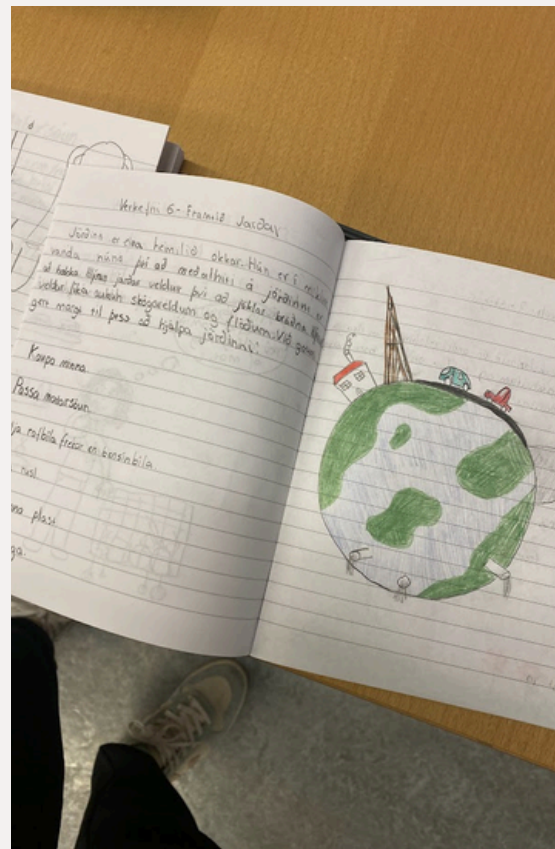 Verkefni 6 - Framtíð Jarðar
Jörðin er eina hemilið okkar. Hún er í miklum
vanda núna því að meðalhiti á jörðinni er
að hækka. Hlýnun jarðar veldur því að jöklar bráðna. Hlýnun
veldur líka auknum skógareldum og flóðum. Við getum
gert margt til þess að hjálpa jörðinni:
Kaupa minna.
Passa matarsóun.
rafbíla frekar en bensínbíla.
rusl.
plast.